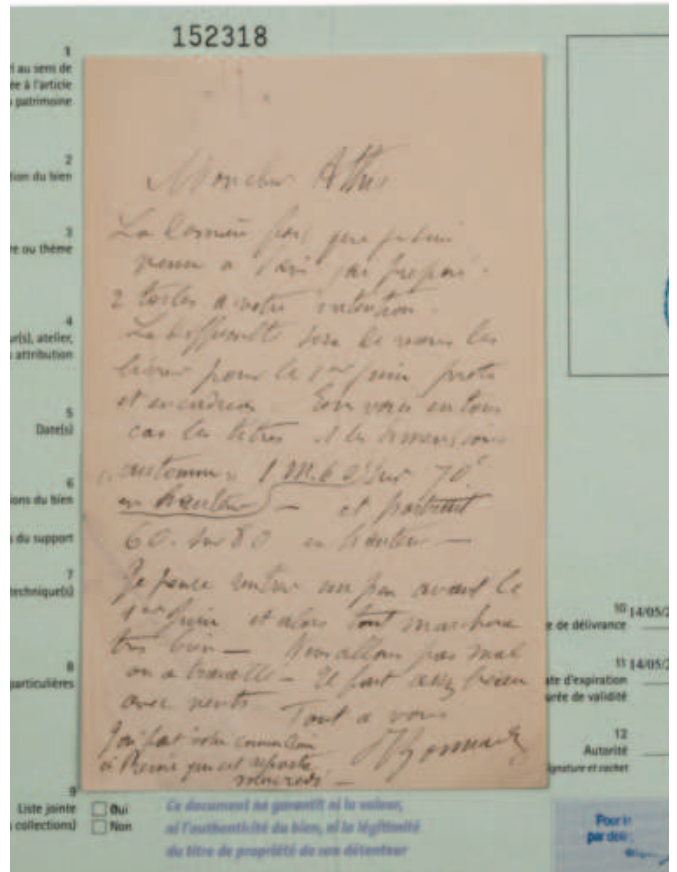 152318
1
au sens de
ée à l'article
patrimoine
2
tion du bien
3
re ou thème
4
ur(s), atelier,
attribution
5
Date(s)
6
ons du bien
du support
7
technique(s)
8
particulières
9
Liste jointe
collections)
Oui
Non
Monsieur Athis
La dernière fois que je suis
venu à
2 toiles à votre intention.
La difficulté sera de vous les
livrer pour le 1er juin prêts
et encadrés. en tous
cas les titres et les dimensions
automne 1 m. 60 sur 70c
en hauteur — et portrait
60 sur 80 en hauteur —
Je pense rentrer un peu avant le
1er juin et alors tout marchera
très bien — Nous allons pas mal
on a travaillé — Il fait assez
avec vents. Tout à vous
J'ai fait votre commission
à
vendredi —
10 14/05/2
e de délivrance
11 14/05/2
ate d'expiration
urée de validité
12
Autorité
signature et cachet
Ce document ne garantit ni la valeur,
ni l'authenticité du bien, ni la légitimité
du titre de propriété de son détenteur
Pour le
par délé